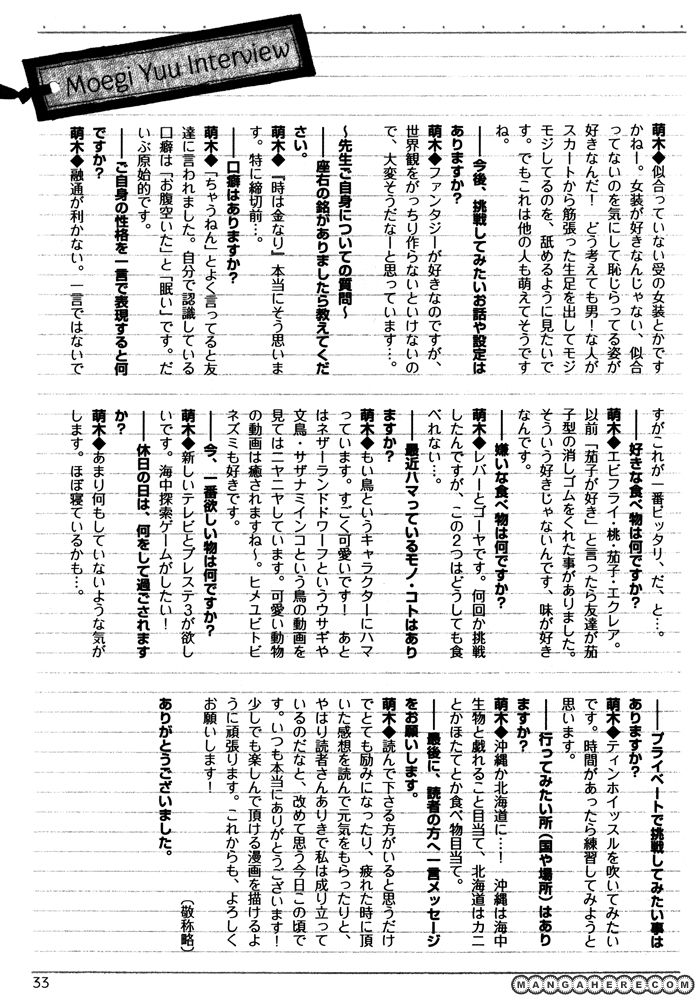 Moegi Yuu Interview
萌木◆似合っていない受の女装とかです
かねー。女装が好きなんじゃない、似合
ってないのを気にして恥じらってる姿が
好きなんだ！　どう考えても男！な人が
スカートから筋張った生足を出してモジ
モジしてるのを、舐めるように見たいで
す。でもこれは他の人も萌えてそうです
ね。
――今後、挑戦してみたいお話や設定は
ありますか？
萌木◆ファンタジーが好きなのですが、
世界観をがっちり作らないといけないの
で、大変そうだなーと思っています…。
～先生ご自身についての質問～
――座右の銘がありましたら教えてくだ
さい。
萌木◆『時は金なり』本当にそう思いま
す。特に締切前…。
――口癖はありますか？
萌木◆「ちゃうねん」とよく言ってると友
達に言われました。自分で認識している
口癖は「お腹空いた」と「眠い」です。だ
いぶ原始的です。
――ご自身の性格を一言で表現すると何
ですか？
萌木◆融通が利かない。一言ではないで
すがこれが一番ピッタリ、だ、と…。
――好きな食べ物は何ですか？
萌木◆エビフライ・桃・茄子・エクレア。
以前「茄子が好き」と言ったら友達が茄
子型の消しゴムをくれた事がありました。
そういう好きじゃないんです、味が好き
なんです。
――嫌いな食べ物は何ですか？
萌木◆レバーとゴーヤです。何回か挑戦
したんですが、この２つはどうしても食
べれない…。
――最近ハマっているモノ・コトはあり
ますか？
萌木◆もい鳥というキャラクターにハマ
っています。すごく可愛いです！　あと
はネザーランドドワーフというウサギや
文鳥・サザナミインコという鳥の動画を
見てはニヤニヤしています。可愛い動物
の動画は癒されますね～。ヒメユビトビ
ネズミも好きです。
――今、一番欲しい物は何ですか？
萌木◆新しいテレビとプレステ3が欲し
いです。海中探索ゲームがしたい！
――休日の日は、何をして過ごされます
か？
萌木◆あまり何もしていないような気が
します。ほぼ寝ているかも…。
――プライベートで挑戦してみたい事は
ありますか？
萌木◆ティンホイッスルを吹いてみたい
です。時間があったら練習してみようと
思います。
――行ってみたい所（国や場所）はあり
ますか？
萌木◆沖縄か北海道に…！　沖縄は海中
生物と戯れること目当て、北海道はカニ
とかほたてとか食べ物目当て。
――最後に、読者の方へ一言メッセージ
をお願いします。
萌木◆読んで下さる方がいると思うだけ
でとても励みになったり、疲れた時に頂
いた感想を読んで元気をもらったりと、
やはり読者さんありきで私は成り立って
いるのだなと、改めて思う今日この頃で
す。いつも本当にありがとうございます！
少しでも楽しんで頂ける漫画を描けるよ
うに頑張ります。これからも、よろしく
お願いします！
ありがとうございました。
（敬称略）
33
WWW.MANGAHERE.COM